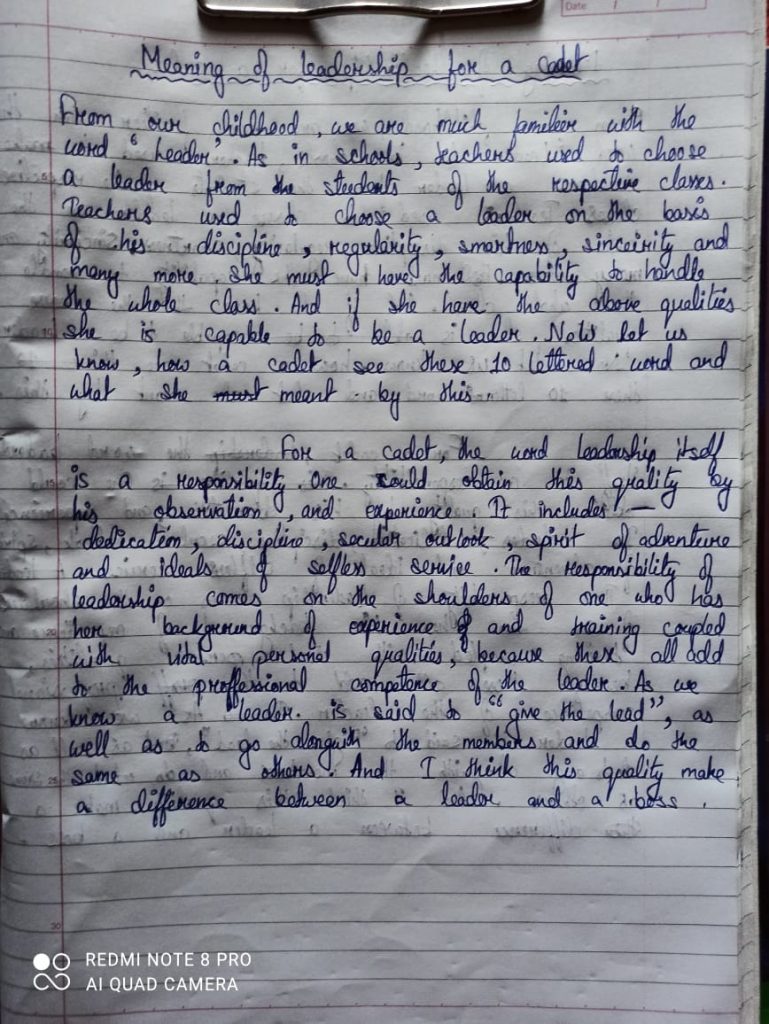 Date / /
Meaning of leadership for a cadet
From our childhood, we are much familier with the
word "Leader". As in schools, teachers used to choose
a leader from the students of the respective classes.
Teachers used to choose a leader on the basis
of his discipline, regularity, smartness, sinceirity and
many more. She must have the capability to handle
the whole class. And if she have the above qualities
she is capable to be a leader. Now let us
know, how a cadet see these 10 lettered word and
what she must meant by this.
For a cadet, the word leadership itself
is a responsibility. One could obtain this quality by
his observation, and experience. It includes —
dedication, discipline, secular outlook, spirit of adventure
and ideals of selfless service. The responsibility of
leadership comes on the shoulders of one who has
her background of experience and training coupled
with vital personal qualities, because these all add
to the proffessional competence of the leader. As we
know a leader is said to "give the lead", as
well as to go alongwith the members and do the
same as others. And I think this quality make
a difference between a leader and a boss.
REDMI NOTE 8 PRO
AI QUAD CAMERA